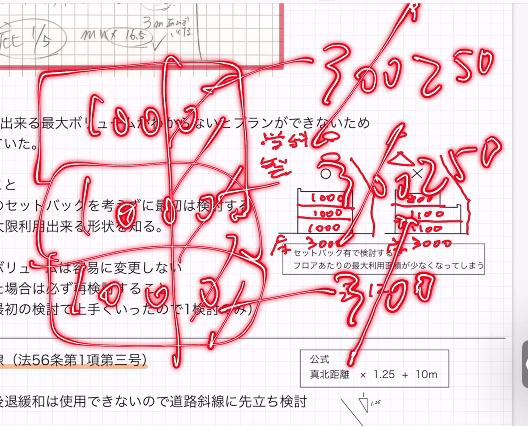 1/5
MAX 16.5
出来る最大ボリュームがわからないとプランができないため
ていた。
こと
のセットバックを考えずに最初は検討する
大限利用出来る形状を知る。
ボリュームは容易に変更しない
た場合は必ず再検討すること
最初の検討で上手くいったので1検討のみ)
1000
1000
1000
300 250
300 250
300
○
×
1000
1000
1000
3000
3000
セットバック有で検討する
フロアあたりの最大利用面積が少なくなってしまう
線(法56条第1項第三号)
公式
真北距離 × 1.25 + 10m
後退緩和は使用できないので道路斜線に先立ち検討
1
1.25